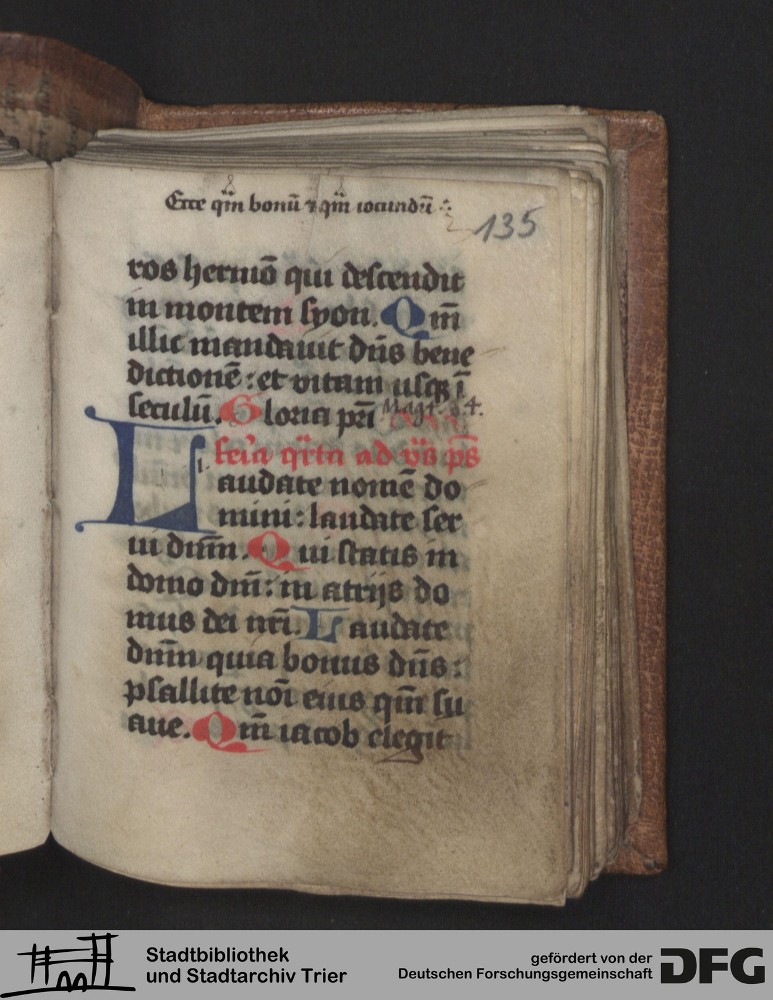 Ecce qm̄ bonū ⁊ qm̄ iocundū
135
ros hermō qui descendit
in montem syon. Qm̄
illic mandauit dn̄s bene
dictionē : et vitam usq; ī
seculū. Gloria pr̄i
feria q̄rta ad vs̄ ps̄
Laudate nomē do
mini : laudate ser
ui dn̄m. Qui statis in
domo dn̄i : in atrijs do
mus dei nr̄i. Laudate
dn̄m quia bonus dn̄s :
psallite noī eius qm̄ su
aue. Qm̄ iacob elegit
Stadtbibliothek
und Stadtarchiv Trier
gefördert von der
Deutschen Forschungsgemeinschaft
DFG